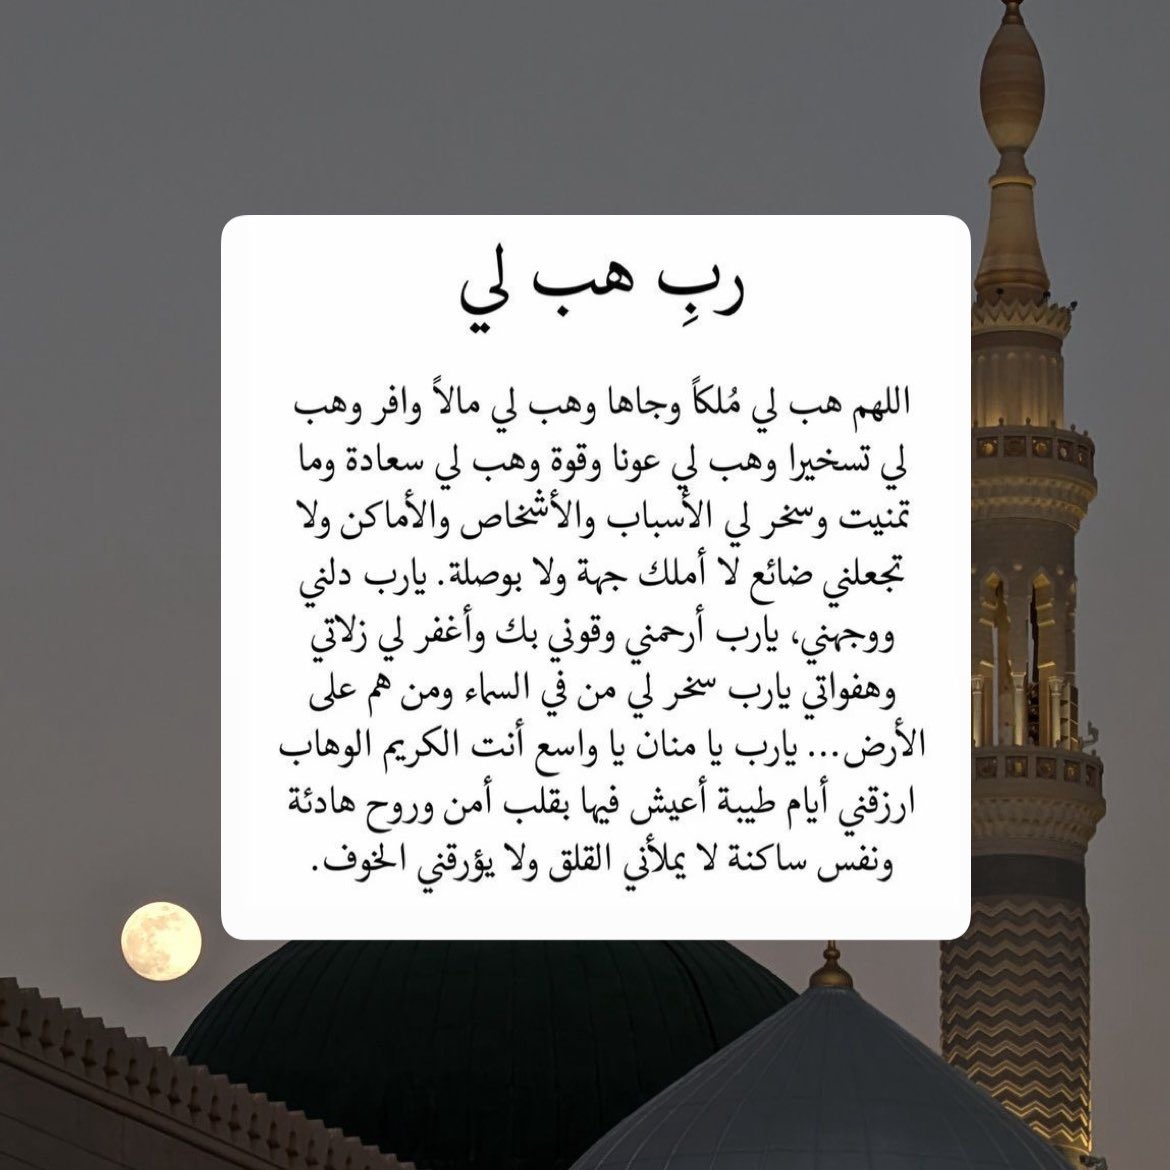 ربِ هب لي
اللهم هب لي مُلكاً وجاها وهب لي مالاً وافر وهب
لي تسخيرا وهب لي عونا وقوة وهب لي سعادة وما
تمنيت وسخر لي الأسباب والأشخاص والأماكن ولا
تجعلني ضائع لا أملك جهة ولا بوصلة. يارب دلني
ووجهني، يارب أرحمني وقوني بك وأغفر لي زلاتي
وهفواتي يارب سخر لي من في السماء ومن هم على
الأرض... يارب يا منان يا واسع أنت الكريم الوهاب
ارزقني أيام طيبة أعيش فيها بقلب أمن وروح هادئة
ونفس ساكنة لا يملأني القلق ولا يؤرقني الخوف.